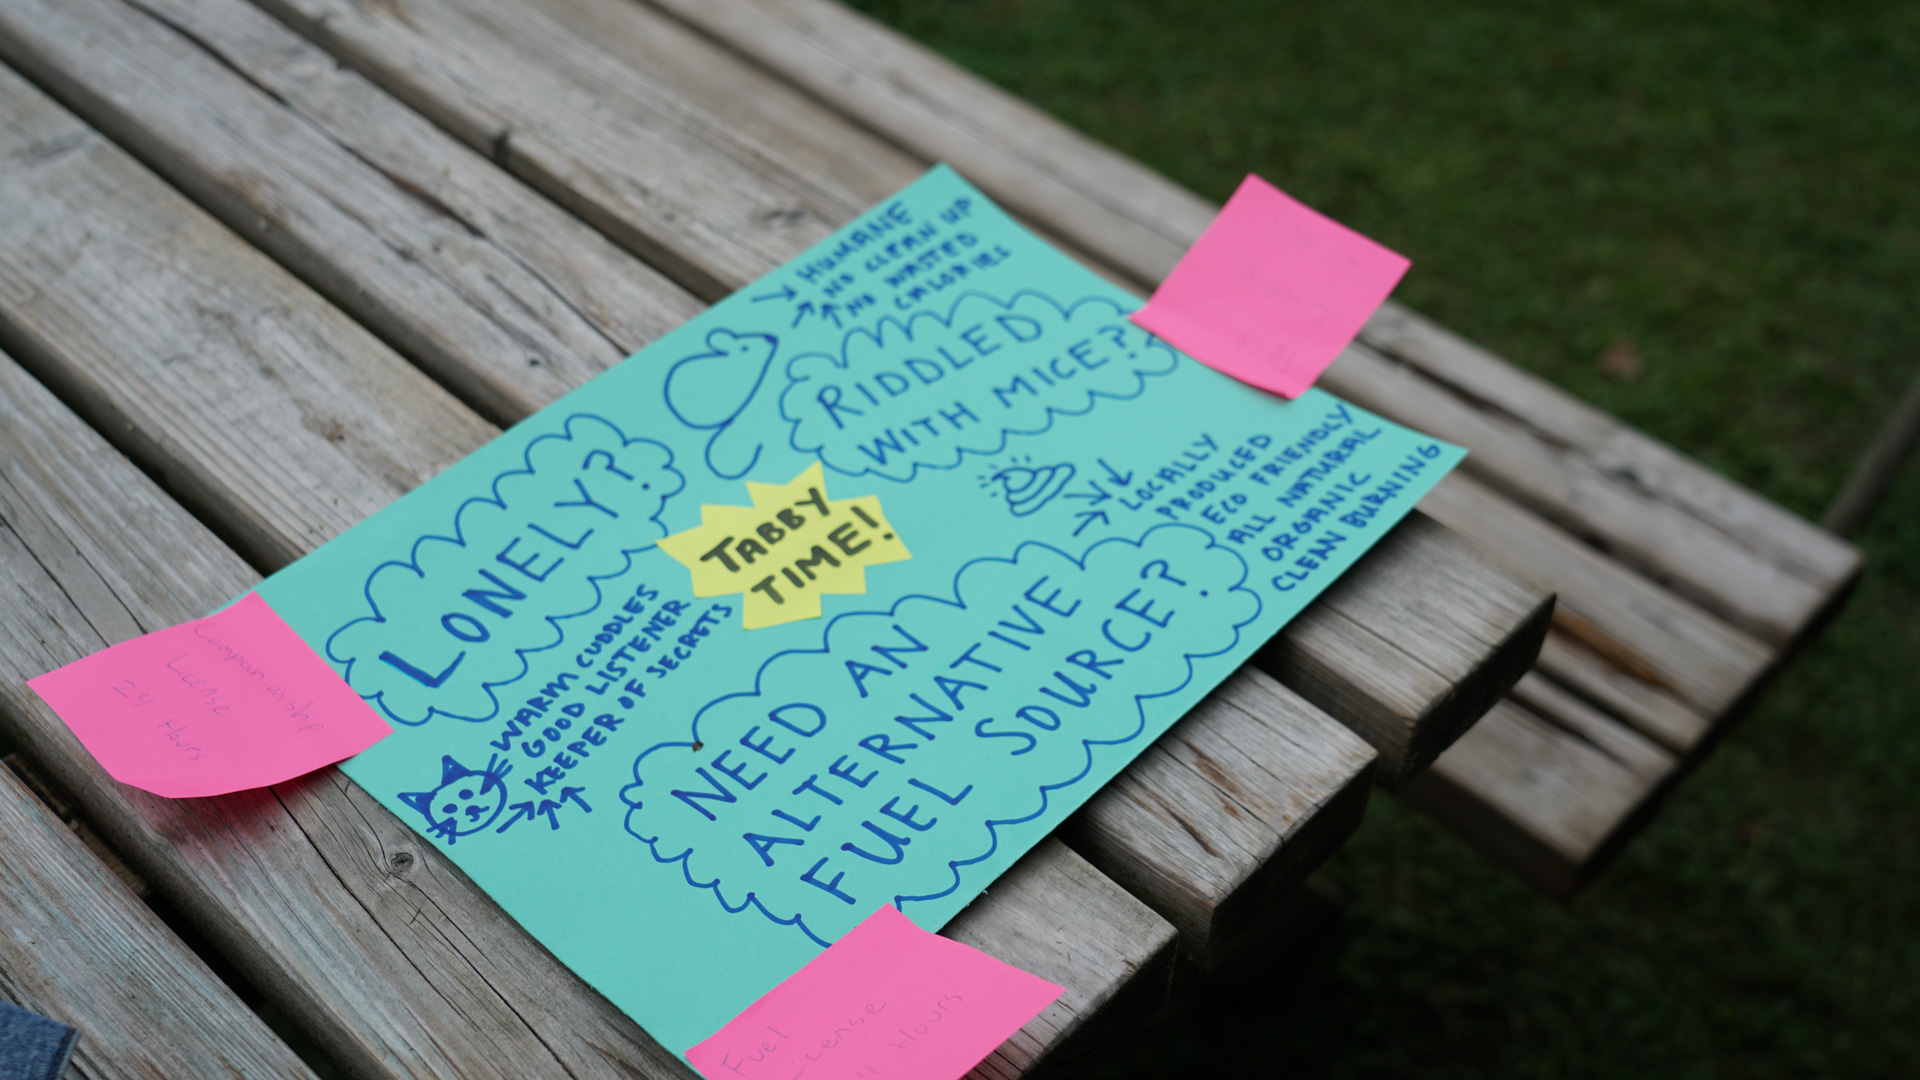 HUMANE
NO CLEAN UP
NO WASTED
CALORIES
RIDDLED
WITH MICE?
LONELY?
TABBY
TIME!
LOCALLY
PRODUCED
ECO FRIENDLY
ALL NATURAL
ORGANIC
CLEAN BURNING
WARM CUDDLES
GOOD LISTENER
KEEPER OF SECRETS
NEED AN
ALTERNATIVE
FUEL SOURCE?
Companionship
License
24 Hours
Fuel
License
Hours